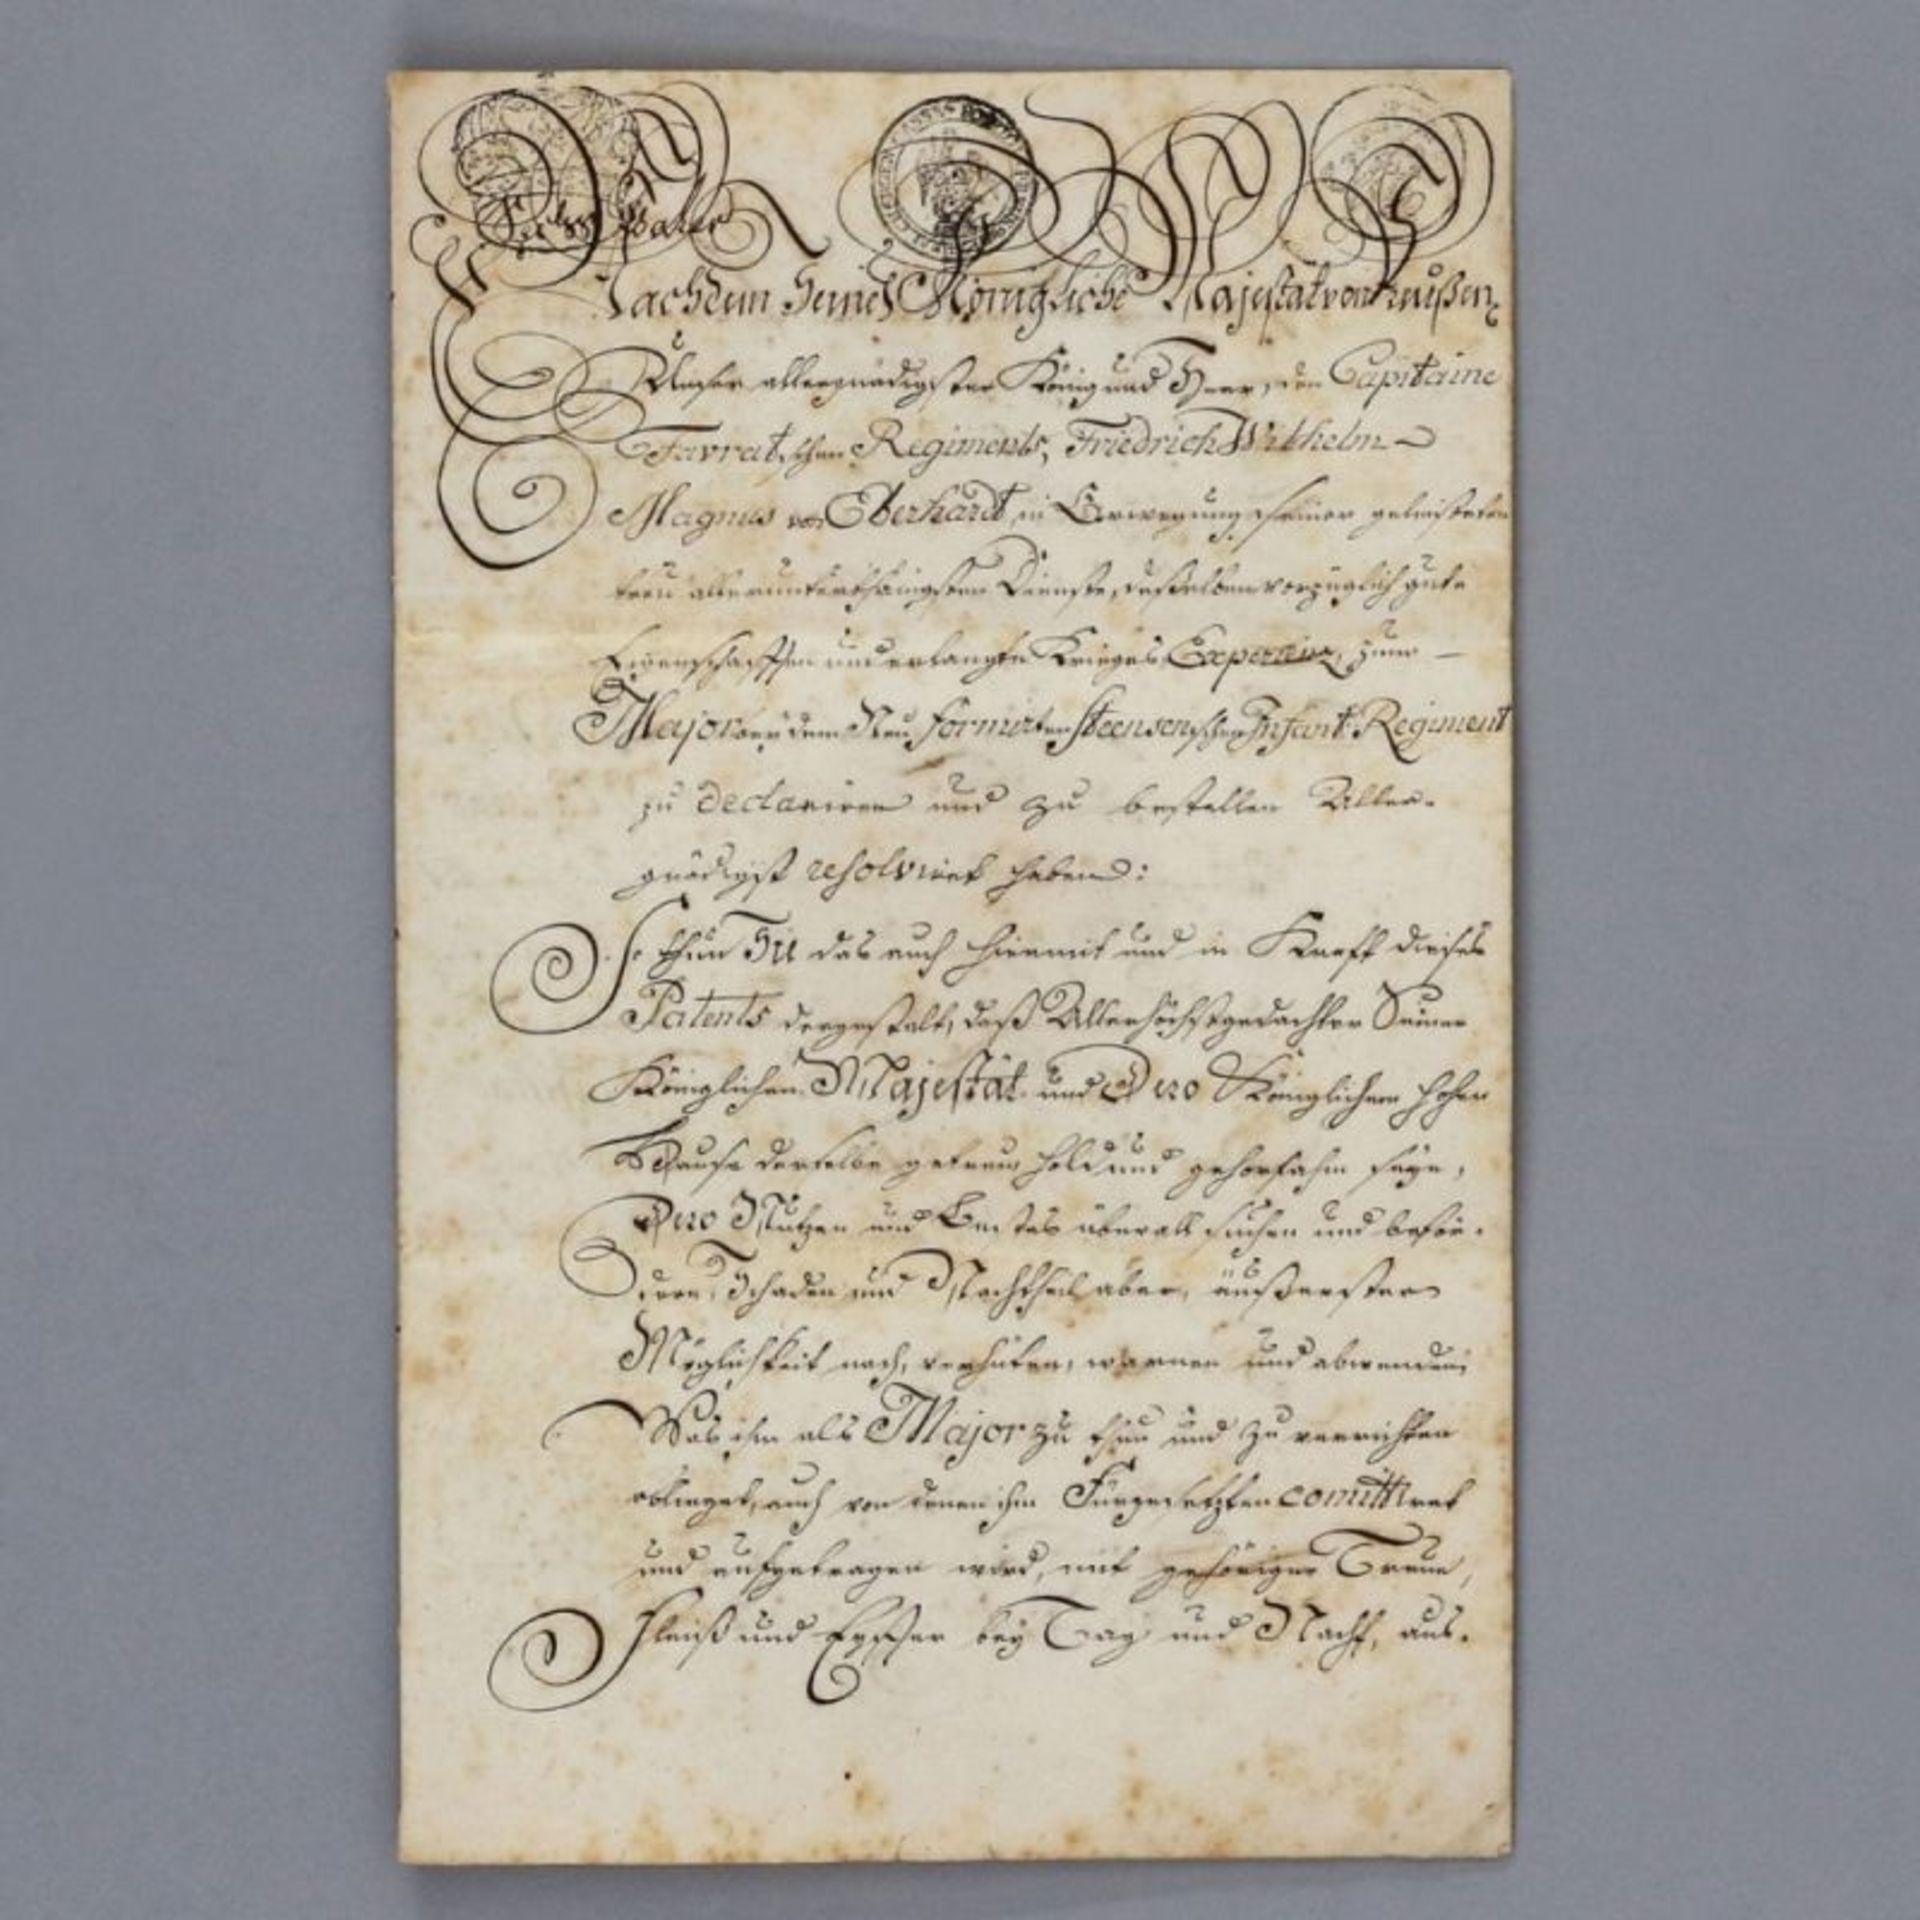 Sechs Thaler
Nachdem Seine Königliche Majestät von Preußen,
Unser allergnädigster König und Herr, den Capitaine
Favratschen Regiments, Friedrich Wilhelm
Magnus von Eberhardt, in Erwegung seiner geleisteten
treu allerunterthänigsten Dienste, deßelben vorzüglich gute
Eigenschafften und erlangte Krieges Experienz, zum
Major bey dem Neu formirten Steensenschen Infant: Regiment
zu declariren und zu bestellen Aller-
gnädigst resolviret haben:
So thun Sie das auch hiermit und in Krafft dieses
Patents dergestalt, daß Allerhöchstgedachter Seiner
Königlichen Majestät und Dero Königlichem Hohen
Hause derselbe getreu hold und gehorsahm seyn,
Dero Nutzen und Bestes überall suchen und beför-
dern, Schaden und Nachtheil aber, äußersten
Möglichkeit nach, verhüten, warnen und abwenden,
Was ihm als Major zu thun und zu verrichten
oblieget, auch von denen ihm Fürgesetzten comittiret
und aufgetragen wird, mit gehöriger Treue,
Fleiß und Eyffer bey Tag und Nacht, aus-